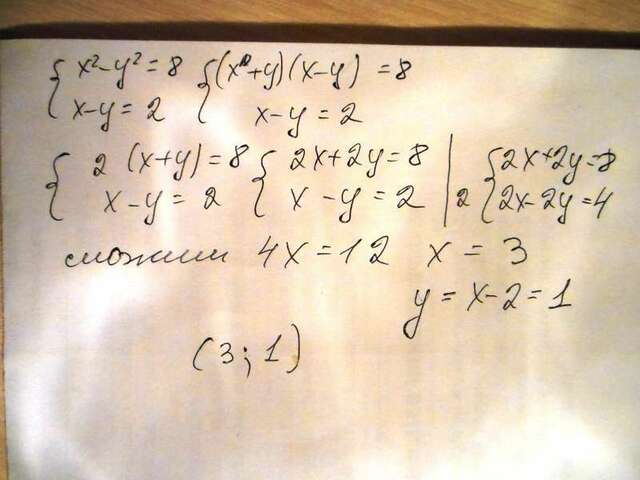 { x² - y² = 8 { (x + y)(x - y) = 8
x - y = 2 x - y = 2
{ 2 (x + y) = 8 { 2x + 2y = 8 | { 2x + 2y = 8
x - y = 2 x - y = 2 | 2 2x - 2y = 4
сложим 4x = 12 x = 3
y = x - 2 = 1
(3; 1)